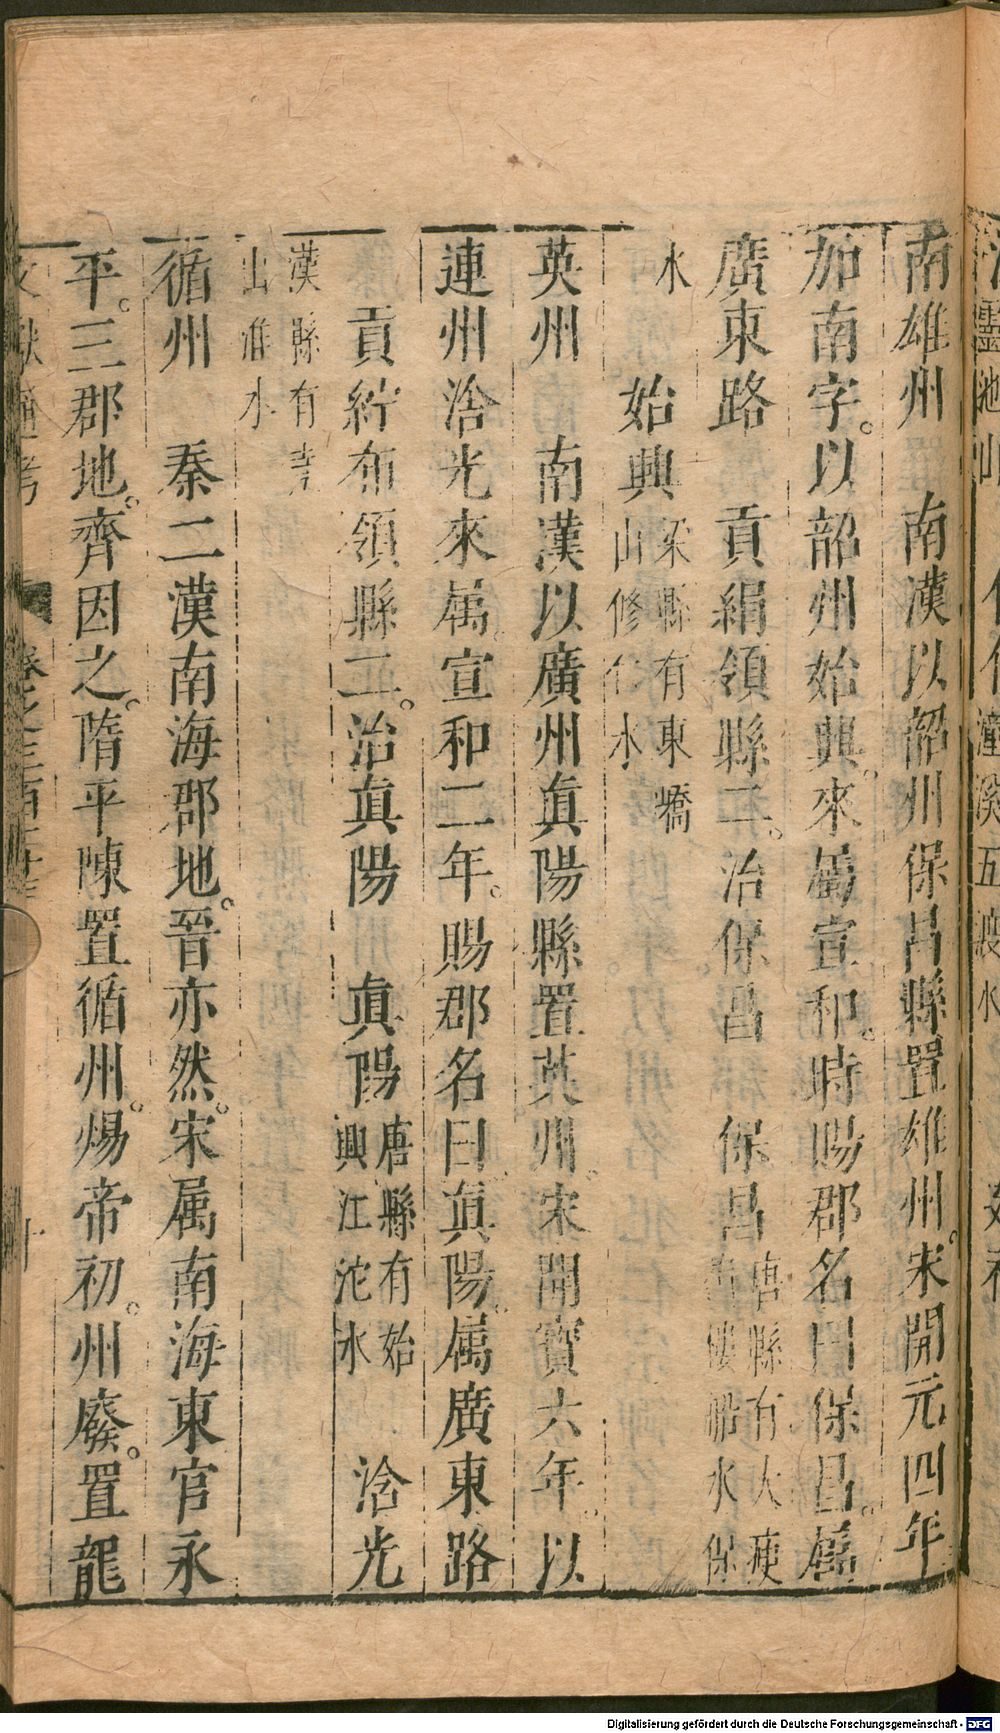 南雄州　南漢以韶州保昌縣置雄州。宋開元四年
加南字。以韶州始興。來屬宣和。時賜郡名曰保昌。屬
廣東路　貢絹領縣二。治保昌　保昌唐縣有大庾
樓船水保
水　始興梁縣有東嶠
山修仁水
英州　南漢以廣州眞陽縣置英州。宋開寶六年。以
連州浛光來属。宣和二年。賜郡名曰眞陽。属廣東路
貢紵布領縣二。治眞陽　眞陽唐縣有始
興江沱水　浛光
漢縣有
山淮水
循州　秦二漢南海郡地。晉亦然。宋属南海東官永
平。三郡地。齊因之。隋平陳置循州。煬帝初。州廢。置龍
文獻通考　卷之三百二十三　十
Digitalisierung gefördert durch die Deutsche Forschungsgemeinschaft - DFG